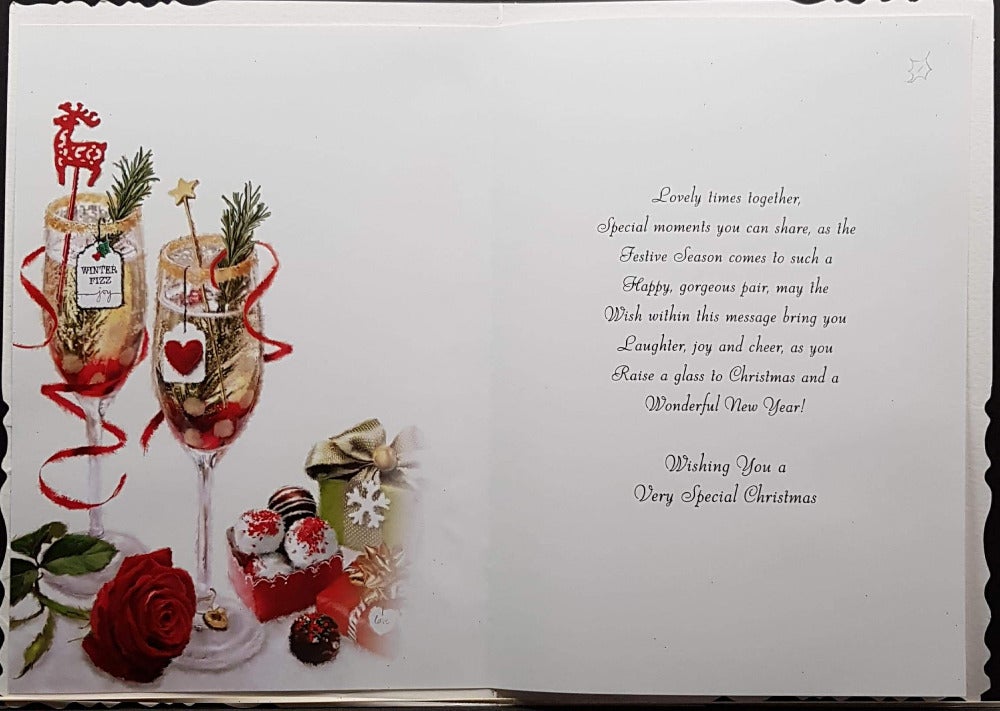 WINTER
FIZZ
joy
love
Lovely times together,
Special moments you can share, as the
Festive Season comes to such a
Happy, gorgeous pair, may the
Wish within this message bring you
Laughter, joy and cheer, as you
Raise a glass to Christmas and a
Wonderful New Year!
Wishing You a
Very Special Christmas